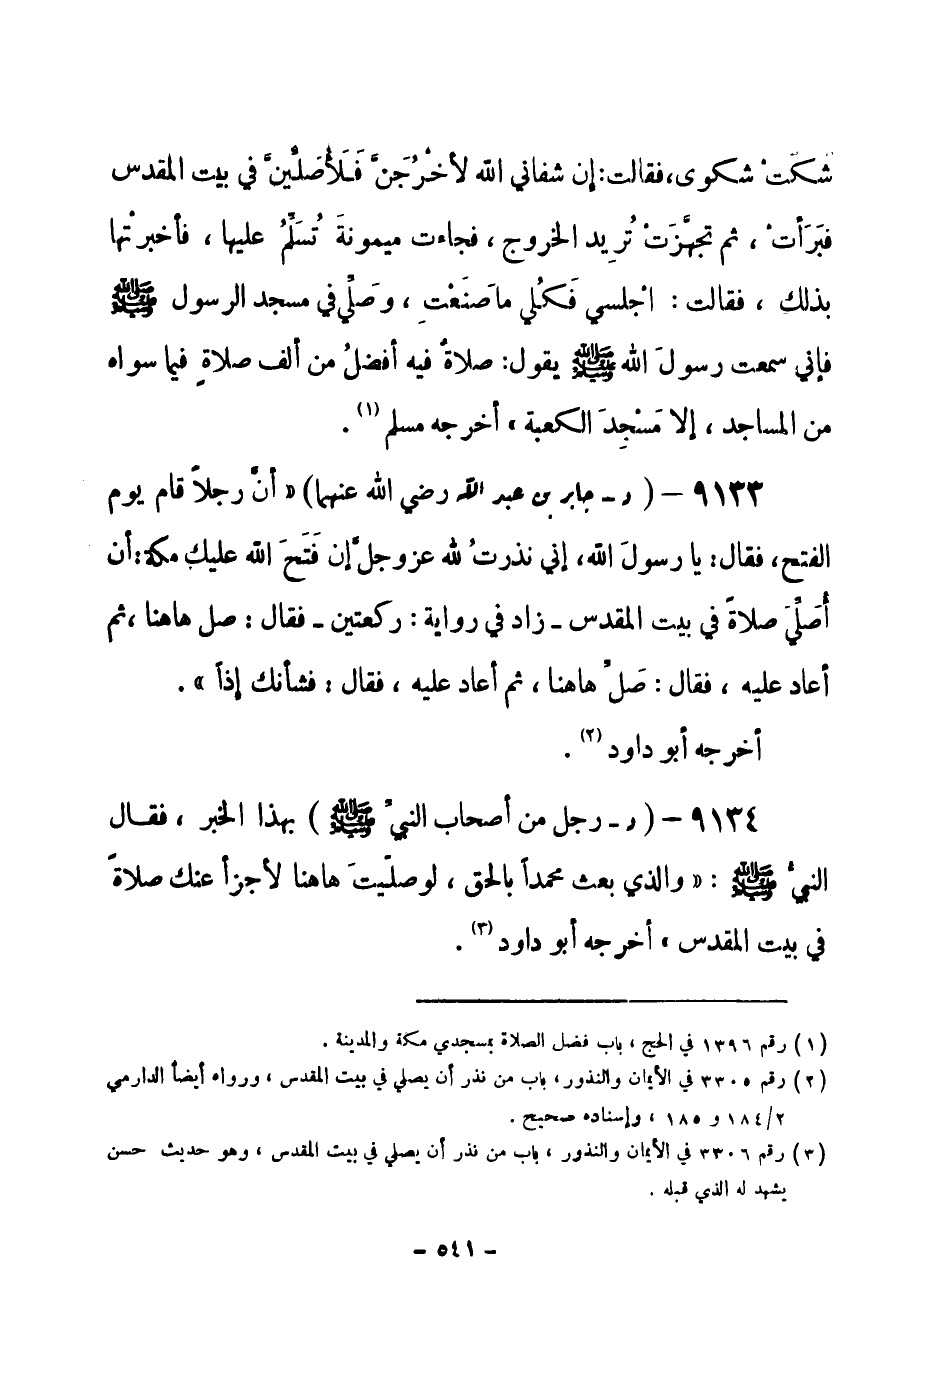 شكَتْ شكوى، فقالت: إن شفاني الله لأخْرُجَنَّ فَلَأُصَلِّينَّ في بيت المقدس
فبَرَأَتْ ، ثم تجهَّزَتْ تُريد الخروج ، فجاءت ميمونةَ تُسَلِّمُ عليها ، فأخبرتْها
بذلك ، فقالت : اجْلسي فَكُلي ما صَنَعْتِ ، وصَلِّي في مسجد الرسول ﷺ
فإني سمعت رسولَ الله ﷺ يقول: صلاةٌ فيه أفضلُ من ألف صلاةٍ فيما سواه
من المساجد ، إلا مَسْجِدَ الكعبة » أخرجه مسلم (١) .
٩١٣٣ – ( د ـ جابر بن عبد الله رضي الله عنهما ) « أنَّ رجلاً قام يوم
الفتح، فقال: يا رسولَ الله، إني نذرتُ لله عز وجل إن فَتَحَ الله عليك مكة: أن
أُصَلِّيَ صلاةً في بيت المقدس ـ زاد في رواية : ركعتين ـ فقال : صل هاهنا ، ثم
أعاد عليه ، فقال : صَلِّ هاهنا ، ثم أعاد عليه ، فقال : فشأنك إذاً » .
أخرجه أبو داود (٢) .
٩١٣٤ – ( د ـ رجل من أصحاب النبيِّ ﷺ ) بهذا الخبر ، فقال
النبيُّ ﷺ : « والذي بعث محمداً بالحق ، لو صلّيتَ هاهنا لأجزأ عنك صلاةً
في بيت المقدس » أخرجه أبو داود (٣) .
(١) رقم ١٣٩٦ في الحج ، باب فضل الصلاة بمسجدي مكة والمدينة .
(٢) رقم ٣٣٠٥ في الأيمان والنذور، باب من نذر أن يصلي في بيت المقدس ، ورواه أيضاً الدارمي
٢/١٨٤ و ١٨٥ ، وإسناده صحيح .
(٣) رقم ٣٣٠٦ في الأيمان والنذور ، باب من نذر أن يصلي في بيت المقدس ، وهو حديث حسن
يشهد له الذي قبله .
– ٥٤١ –